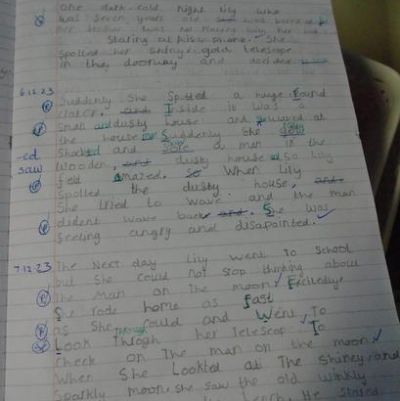 One dark cold night lily who
was seven years old was bored of
her
Staring at her
Spotted her shiney gold telescope
in the doorway and decided
6.12.23 Suddenly She Spotted a huge Round
crater. and Inside it was a
Small and dusty house and
the house Suddenly She
-ed Shocked and a man in the
saw wooden, and dusty house also lily
felt amazed. so When Lily
Spotted the dusty house, and
She tried to wave and the man
dident wave back and. She was
feeling angry and disapointed.
7.12.23 The Next day Lily went to School
but She Could not Stop thinking about
The man on the moon Excitedly
She rode home as fast
as She Could and Went To
Look Throgh through her Telescop To
Check on The man on the moon
When She Lookted at The Shiney and
Sparkly moon, she saw the old wrinkly